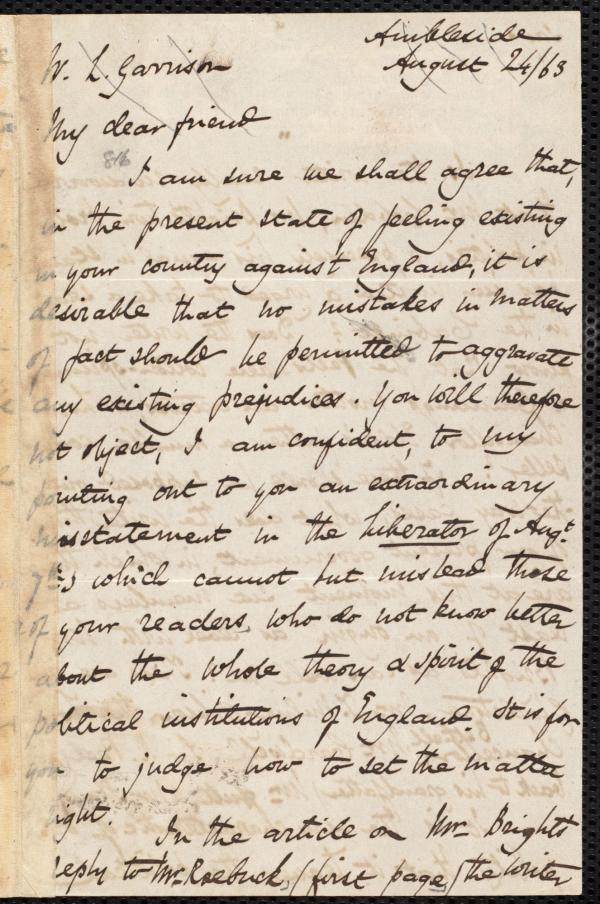 Ambleside
August 24/63
W. L. Garrison
My dear friend
816
I am sure we shall agree that,
in the present state of feeling existing
in your country against England, it is
desirable that no mistakes in matters
of fact should be permitted to aggravate
any existing prejudices. You will therefore
not object, I am confident, to my
pointing out to you an extraordinary
misstatement in the Liberator of Augt.
7th, which cannot but mislead those
of your readers, who do not know better
about the whole theory & spirit of the
political institutions of England. It is for
you to judge how to set the matter
right.
In the article on Mr. Bright's
reply to Mr. Roebuck, (first page,) the writer